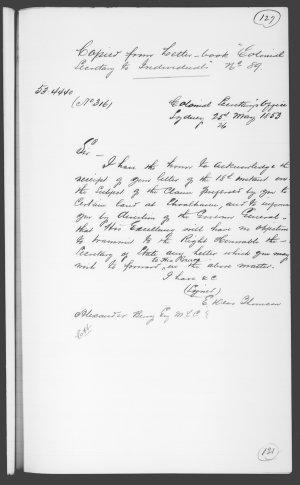 127
Copied from Letter-book "Colonial
Secretary to Individuals" No 89.
53-4440
(No 316)
Colonial Secretary's Office
Sydney 25th May 1853
26
Sir
I have the honor to acknowledge the
receipt of your letter of the 18th instant on
the subject of the Claim preferred by you to
Certain land at Shoalhaven, and to inform
you by direction of the Governor General-
that His Excellency will have no objection
to transmit to the Right Honorable the-
Secretary of State any letter which you may
to this Office
wish to forward, on the above matter.
I have &c
(Signed)
E. Deas Thomson
Alexander Berry Esq M.L.C.
121